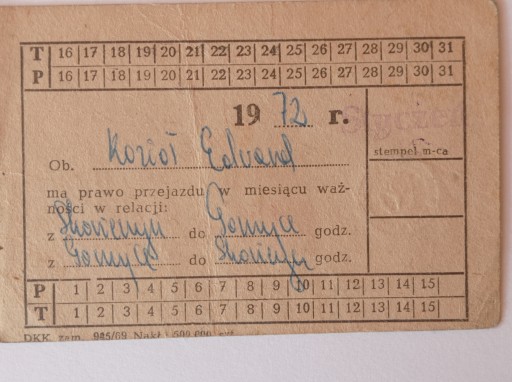 T 16 17 18 19 20 21 22 23 24 25 26 27 28 29 30 31
P 16 17 18 19 20 21 22 23 24 25 26 27 28 29 30 31
19 72 r.
Ob. Kozioł Edward
stempel m-ca
ma prawo przejazdu w miesiącu waż-
ności w relacji:
z do godz.
z do godz.
P 1 2 3 4 5 6 7 8 9 10 11 12 13 14 15
T 1 2 3 4 5 6 7 8 9 10 11 12 13 14 15
DKK zam. 945/69